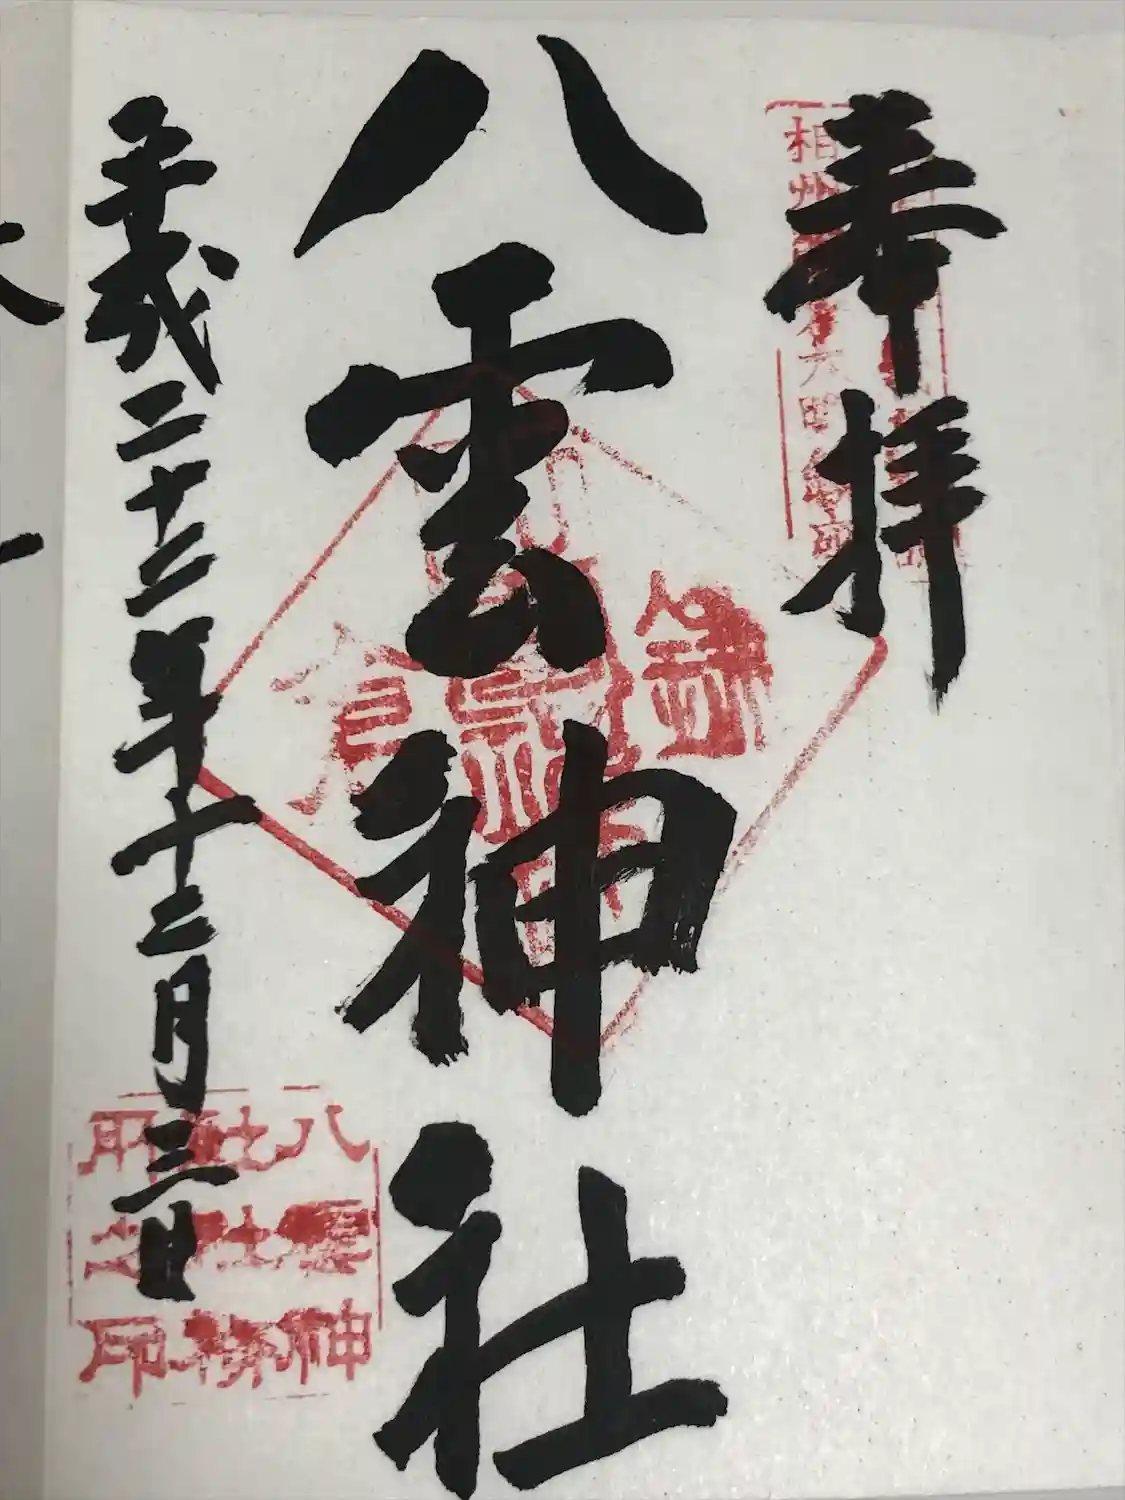 奉拝
八雲神社
平成二十二年十二月三日
相州
鎌倉
八雲神
社社務
所之印